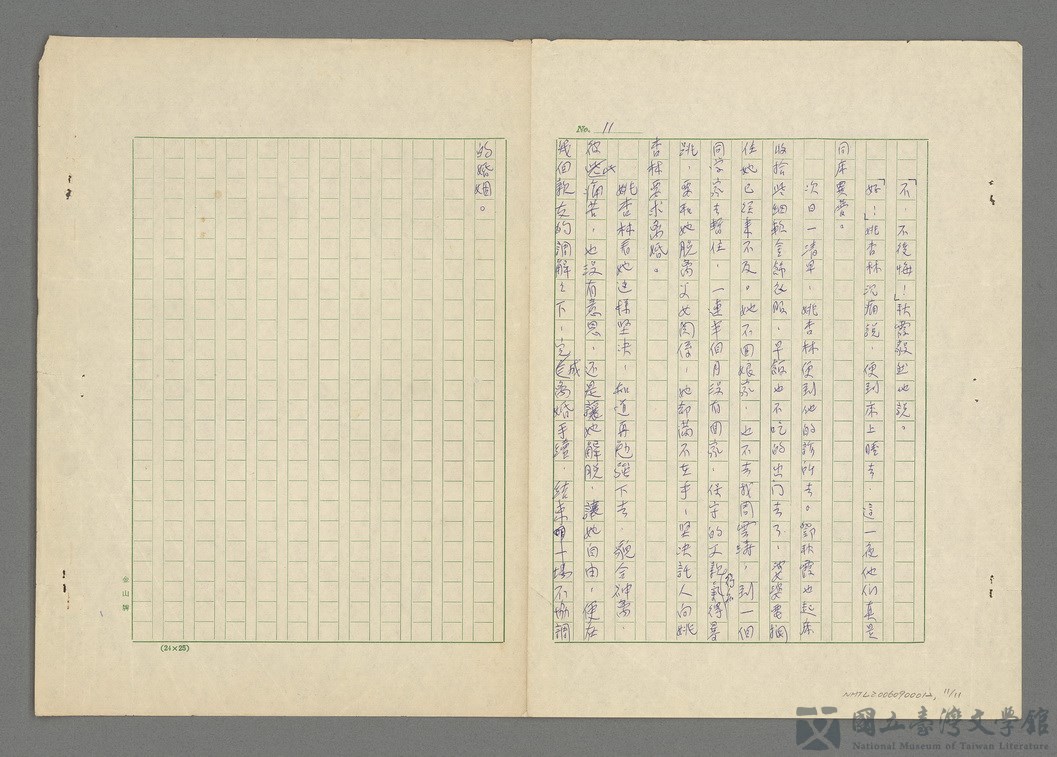 No. 11
「不，不後悔！」秋霞毅然地說。
「好！」姚杏林沉痛說，便到床上睡去，這一夜他们真是
同床異夢。
次日一清早，姚杏林便到他的診所去。鄧秋霞也起床
收拾些細軟金飾衣服，早飯也不吃的出门去了，婆婆要捆
住她已經來不及。她不回娘家，也不去找周雲濤，到一個
同学家去暫住，一連半個月没有回家，保守的父親氣得暴
跳，要和她脫离父女関係，她却滿不在乎，坚决託人向姚
杏林要求离婚。
姚杏林看她这樣坚决，知道再勉强下去，貌合神离，
彼此痛苦，也没有意思，还是讓她解脫，讓她自由，便在
幾個親友的調解之下，完成离婚手續，結束一場不協調
的婚姻。
金山牌
(24×25)
NMTL20060900012, 11/11
國立臺灣文學館
National Museum of Taiwan Literature